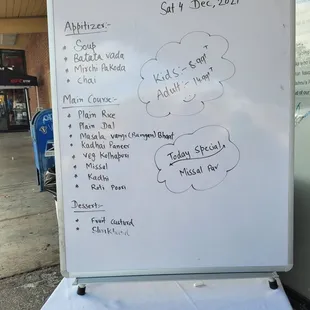 Sat 4 Dec, 2021
Appetizer:-
* Soup
* Batata vada
* Mirchi Pakoda
* chai
Kids:- 8 app
Adult:- 14 app
Main Course:-
* Plain Rice
* Plain Dal
* Masala vangi (Bharit)
* Kadhai Paneer
* veg Kolhapuri
* Missal
* Kadhi
* Roti Poori
Today Special:
Missal Pav
Dessert:-
* Fruit Custard
* Shrikhand